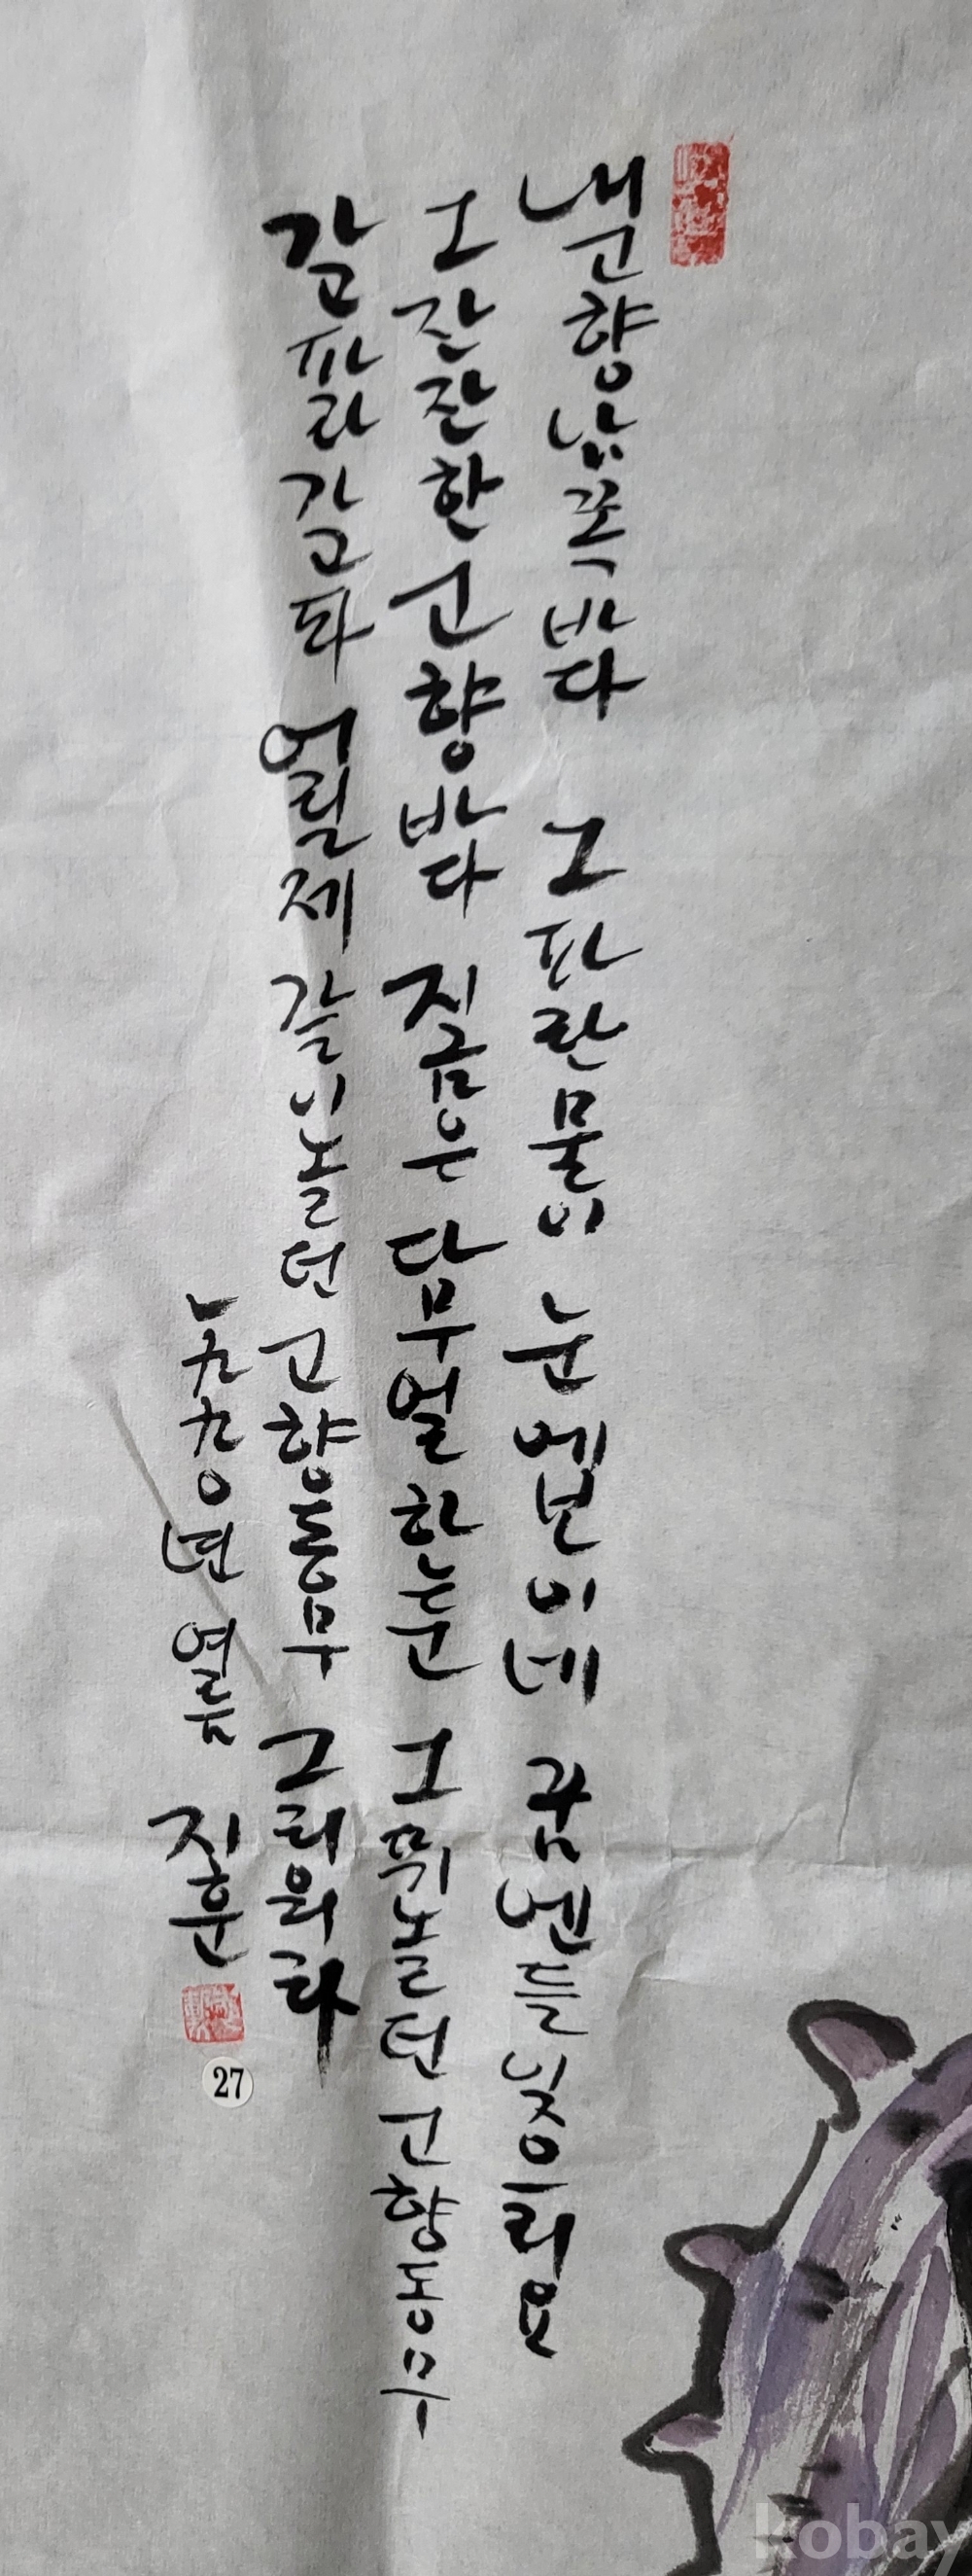 내고향남쪽바다 그파란물이 눈에보이네 꿈엔들잊으리요
그잔잔한고향바다 지금은 다무얼하는 그뛰놀던고향동무
가고파라가고파 어릴제 같이놀던 고향동무 그리워라
一九九〇년 여름 지훈
27
kobay